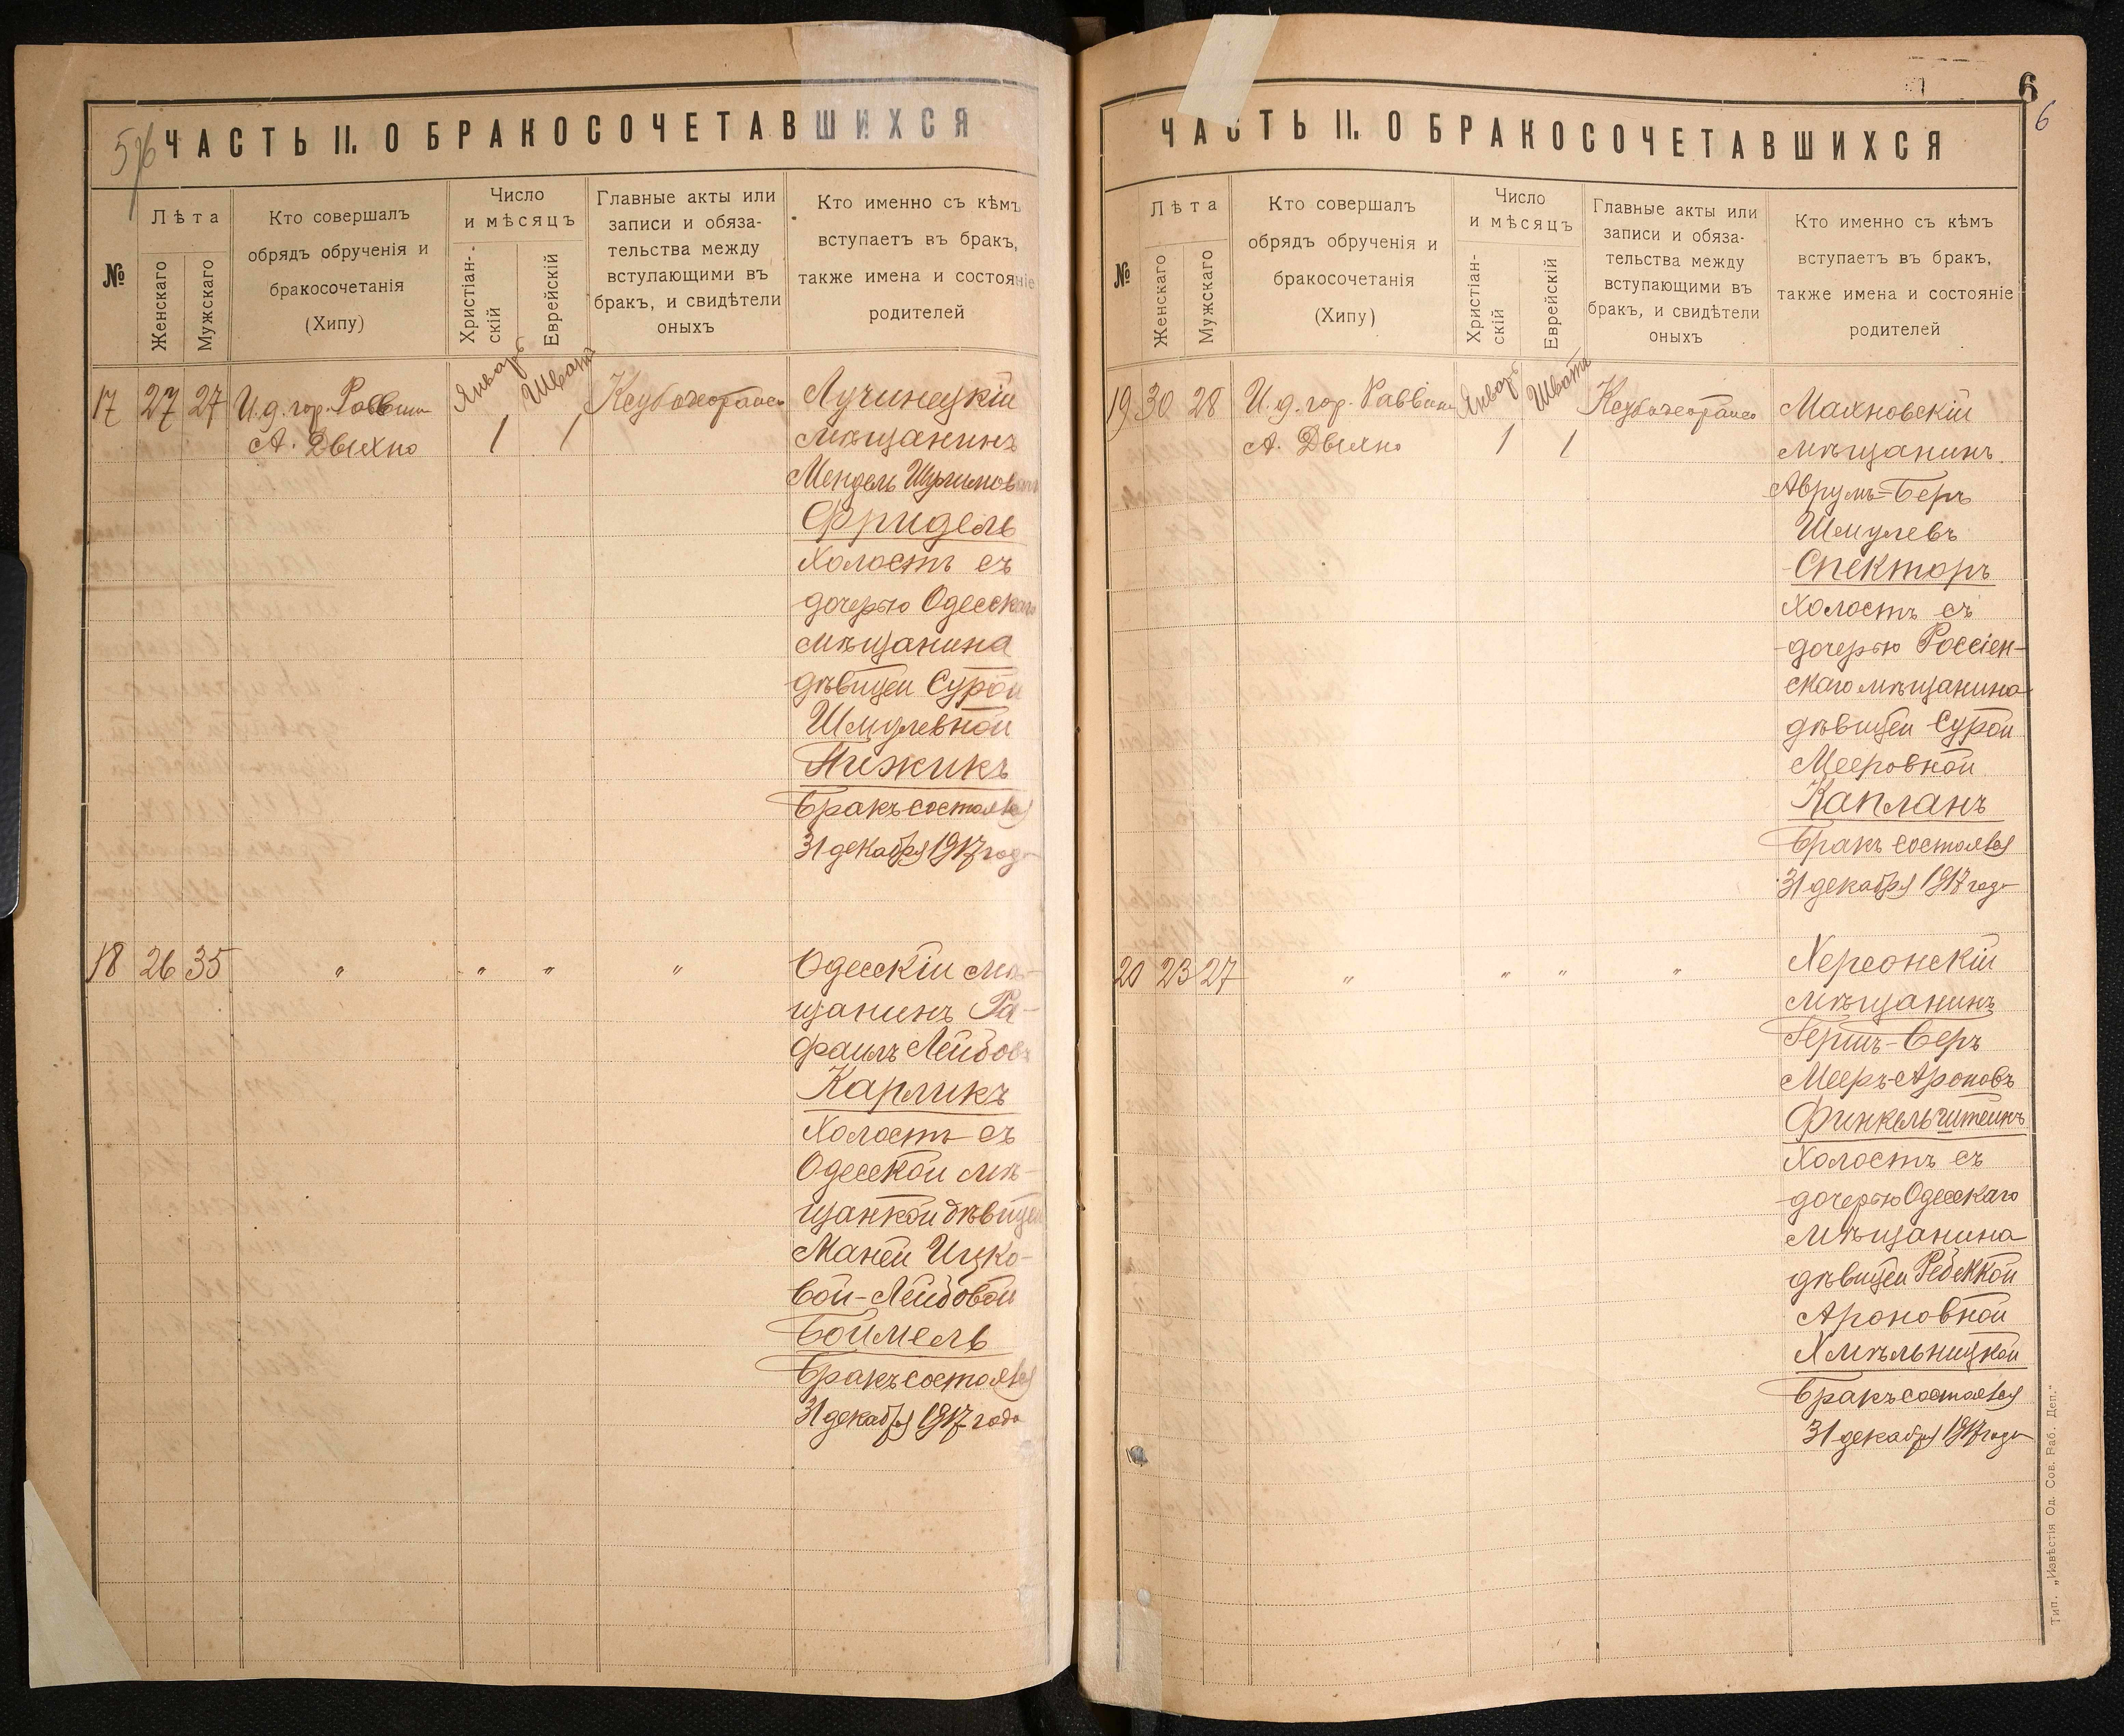 5/6
ЧАСТЬ II. О БРАКОСОЧЕТАВШИХСЯ
№
Лѣта
Женскаго
Мужскаго
Кто совершалъ
обрядъ обрученія и
бракосочетанія
(Хипу)
Число
и мѣсяцъ
Христіан-
скій
Еврейскій
Главные акты или
записи и обяза-
тельства между
вступающими въ
бракъ, и свидѣтели
оныхъ
Кто именно съ кѣмъ
вступаетъ въ бракъ,
также имена и состояніе
родителей
17 27 27 И.д. гор. Раввин Январь Шватъ Лучинецкій
А. Двыхно 1 1 мѣщанинъ
Мендель
Фридель
Холостъ съ
дочерью Одесскаго
мѣщанина
дѣвицей Сурой
Шмулевной
Пижикъ
Бракъ состоялся
31 декабря 1917 года
18 26 35 " " " " Одесскій мѣ-
щанинъ Ра-
фаилъ Лейбовъ
Карликъ
Холостъ съ
Одесской мѣ-
щанкой дѣвицей
Маней Ицко-
вой-Лейбовой
Боймель
Бракъ состоялся
31 декабря 1917 года
6
6
ЧАСТЬ II. О БРАКОСОЧЕТАВШИХСЯ
№
Лѣта
Женскаго
Мужскаго
Кто совершалъ
обрядъ обрученія и
бракосочетанія
(Хипу)
Число
и мѣсяцъ
Христіан-
скій
Еврейскій
Главные акты или
записи и обяза-
тельства между
вступающими въ
бракъ, и свидѣтели
оныхъ
Кто именно съ кѣмъ
вступаетъ въ бракъ,
также имена и состояніе
родителей
19 30 28 И.д. гор. Раввин Январь Шватъ Махновскій
А. Двыхно 1 1 мѣщанинъ
Аврумъ=Беръ
Шмулевъ
Спекторъ
Холостъ съ
дочерью Россіен-
скаго мѣщанина
дѣвицей Сурой
Мееровной
Капланъ
Бракъ состоялся
31 декабря 1917 года
20 23 27 " " " " Херсонскій
мѣщанинъ
Гершъ-Беръ
Мееръ-Ароновъ
Финкельштейнъ
Холостъ съ
дочерью Одесскаго
мѣщанина
дѣвицей Ребеккой
Ароновной
Хмѣльницкой
Бракъ состоялся
31 декабря 1917 года
Тип. „Извѣстія Од. Сов. Раб. Деп."